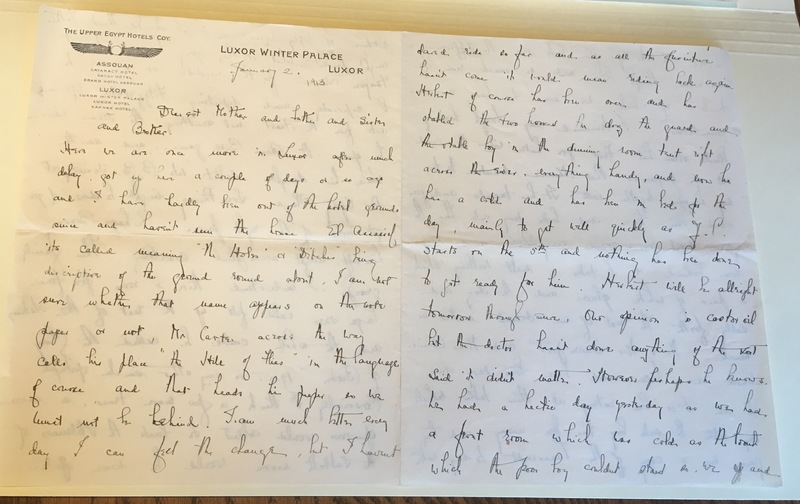 THE UPPER EGYPT HOTELS COY.
ASSOUAN
CATARACT HOTEL
SAVOY HOTEL
GRAND HOTEL ASSOUAN
LUXOR
LUXOR WINTER PALACE
LUXOR HOTEL
KARNAK HOTEL
LUXOR WINTER PALACE
LUXOR
January 2. 1913
Dearest Mother and Father and Sister
and Brother.
Here we are once more in Luxor after much
delay, got up here a couple of days or so ago
and I have hardly been out of the hotel grounds
since and haven't seen the house El Assasif,
its called meaning "the Holes" or Ditches" being
descriptive of the ground round about. I am not
sure whether that name appears on the note
paper or not, Mr Carter across the way
calls his place "the Hole of" in the language
of course and that heads his paper so we
must not be behind. I am much better every
day I can feel the change, but I haven't
dared ride so far and as all the furniture
hasn't come it would mean riding back again
Herbert of course has been over and has
stabled the two horses the dog the guards and
the stable boy in the dining room tent right
across the river. everything handy, and now he
has a cold and has been in bed for the
day, mainly to get well quickly as J.P.
starts on the 5th and nothing has been done
to get ready for him. Herbert will be allright
tomorrow through more. Our opinion is castor oil
but the doctor hasn't done anything of the sort
said it didn't matter. However perhaps he knows.
We had a hectic day yesterday as we had
a front room which was cold as the
which the poor boy couldn't stand so we up and